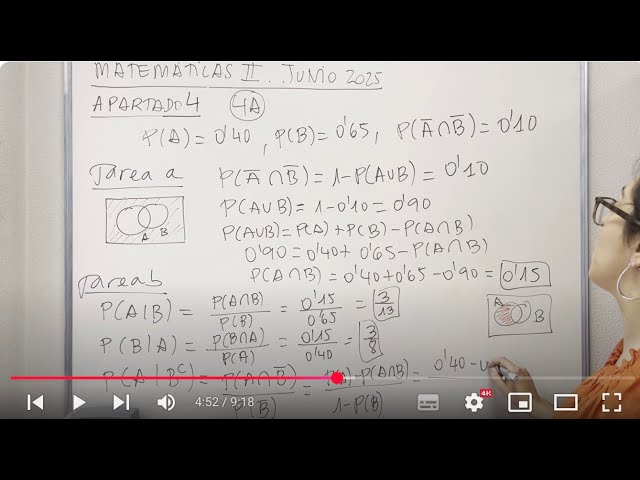 MATEMÁTICAS II. JUNIO 2025
APARTADO 4 4A
P(A) = 0'40, P(B) = 0'65, P(A̅∩B̅) = 0'10
Tarea a P(A̅∩B̅) = 1-P(A∪B) = 0'10
P(A∪B) = 1-0'10 = 0'90
P(A∪B) = P(A) + P(B) - P(A∩B)
A B
0'90 = 0'40 + 0'65 - P(A∩B)
P(A∩B) = 0'40 + 0'65 - 0'90 = 0'15
Tarea b
P(A|B) = P(A∩B)/P(B) = 0'15/0'65 = 3/13
A B
P(B|A) = P(B∩A)/P(A) = 0'15/0'40 = 3/8
P(A|Bᶜ) = P(A∩B̅)/P(B̅) = P(A)-P(A∩B)/1-P(B) = 0'40 -
4:52 / 9:18
4K